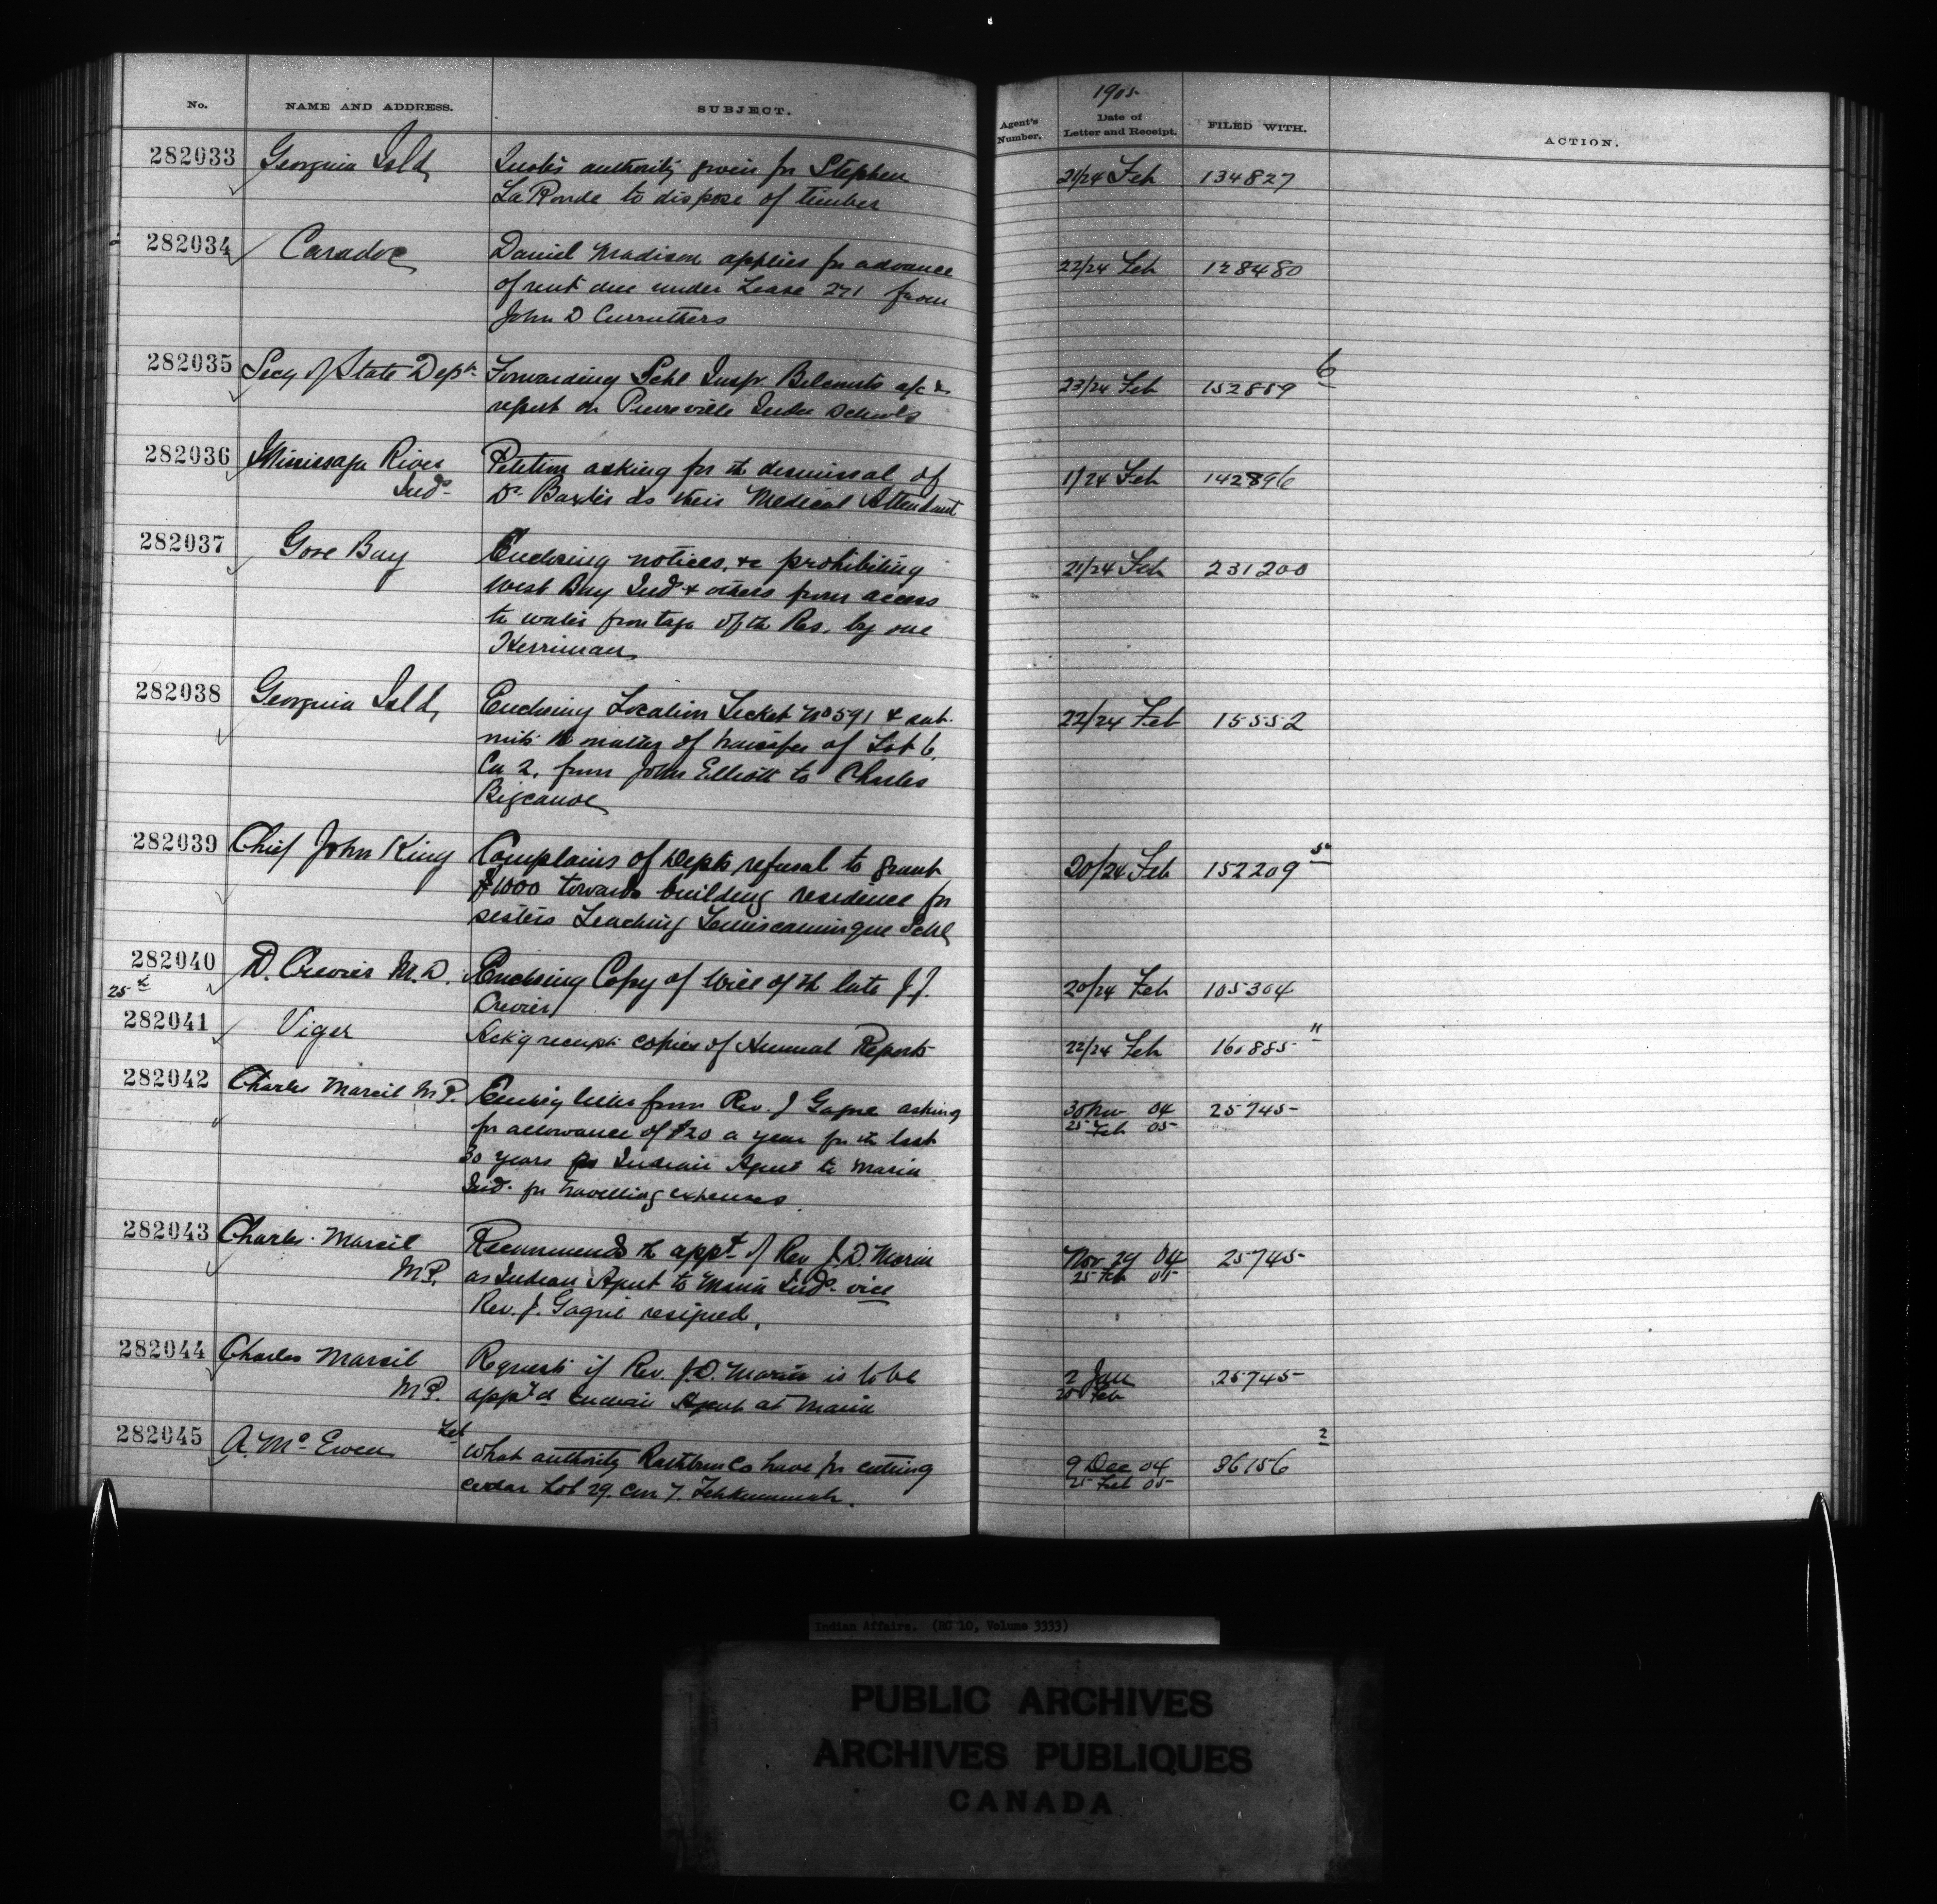 No. NAME AND ADDRESS. SUBJECT. Agent's Number. 1905 Date of Letter and Receipt. FILED WITH. ACTION.
282033 Georgina Isld, authority given for Stephen 21/24 Feb 134827
La Ronde to dispose of timber
282034 Caradoc Daniel Madison applies for advance 22/24 Feb 128480
of rent due under Lease 271 from
John D Curruthers
282035 Secy of State Dept. Forwarding Schl Inspr. a/c & 23/24 Feb 152859 6
report on Pierreville Indn Schools
282036 Mississaga River Petition asking for th dismissal of 1/24 Feb 142896
Inds. Dr. Baxter as their Medical Attendant
282037 Gore Bay Enclosing notices, &c prohibiting 21/24 Feb 231200
West Bay Inds & others from access
to water frontage of th Res. by one
Herriman
282038 Georgina Isld, Enclosing Location Ticket No 591 & sub- 22/24 Feb 15552
mits th matter of transfer of Lot 6,
Con 2, from John Elliott to Charles
Bigcanoe
282039 Chief John King Complains of Depts refusal to grant 20/24 Feb 152209
$1000 towards building residence for
sisters teaching Temiscamingue Schl
282040 D. Crevier M.D. Enclosing Copy of Will of th late J.J. 20/24 Feb 105304
25 Crevier
282041 Viger Ackg receipt copies of Annual Reports 22/24 Feb 160885 11
282042 Charles Marcil M.P. letter from Rev. J Gagne asking 30 Nov 04 25745
for allowance of $20 a year for th last 25 Feb 05
30 years as Indian Agent to Maria
Inds. for travelling expenses.
282043 Charles Marcil Recommends th appt of Rev J.D. Morin Nov 29 04 25745
M.P. as Indian Agent to Maria Inds. vice 25 Feb 05
Rev. J. Gagné resigned.
282044 Charles Marcil Requests if Rev. J.D. Morin is to be 2 Jan 25745
M.P. app'td Indian Agent at Maria 25 Feb
282045 A. McEwen What authority Rathbun Co have for cutting 9 Dec 04 36156 2
cedar Lot 29. Con 7. Tehkummah. 25 Feb 05
Indian Affairs. (RG 10, Volume 3333)
PUBLIC ARCHIVES
ARCHIVES PUBLIQUES
CANADA